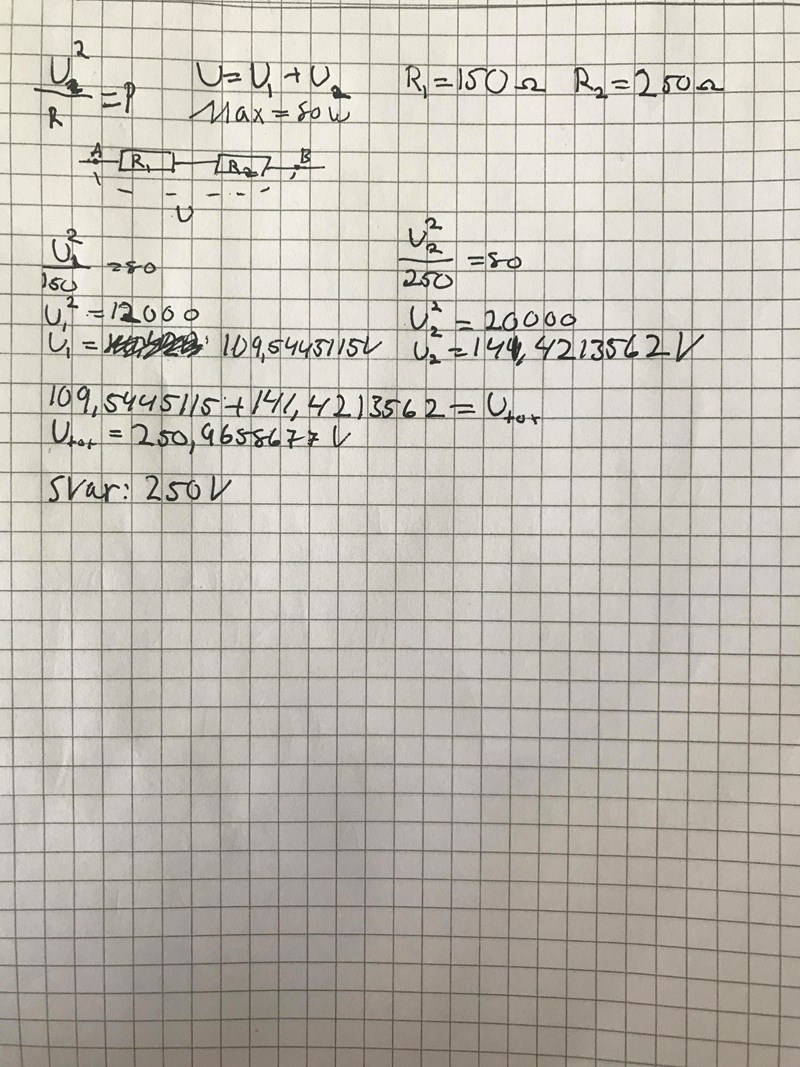 U₂²/R = P
U = U₁ + U₂
Max = 80W
R₁ = 150Ω R₂ = 250Ω
A R₁ R₂ B
U
U₁²/150 = 80
U₁² = 12000
U₁ = 109,5445115V
U₂²/250 = 80
U₂² = 20000
U₂ = 141,4213562V
109,5445115 + 141,4213562 = Utot
Utot = 250,9658677V
Svar: 250V